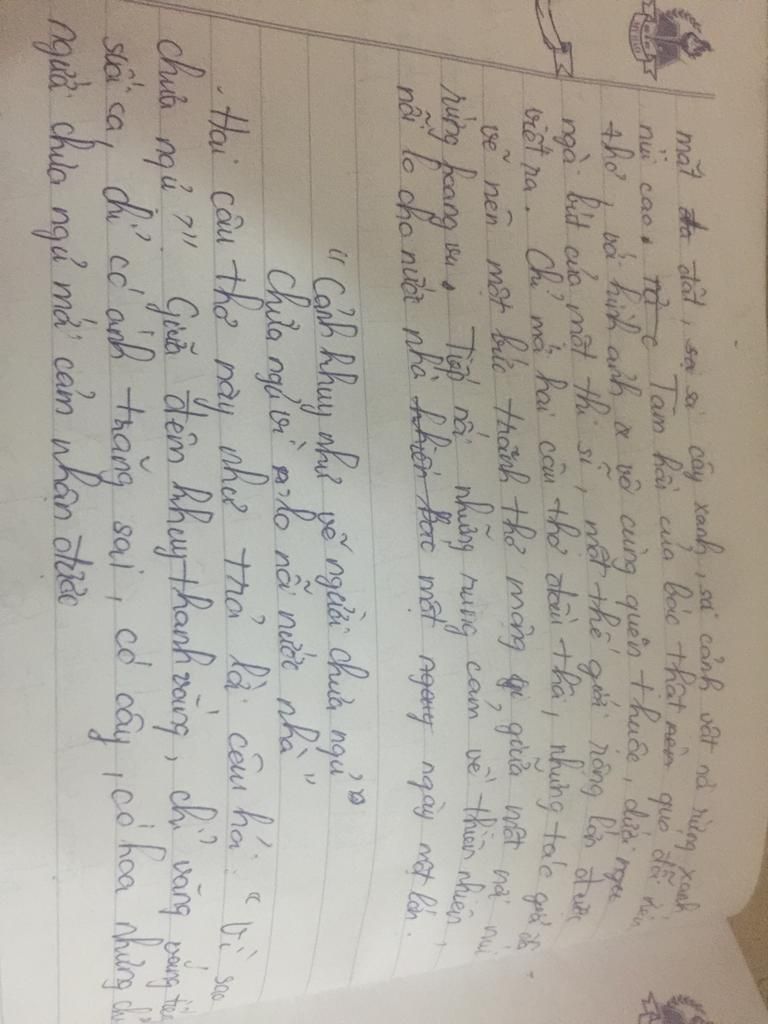 mặt đất, soi cây xanh, soi cảnh vật nơi rừng xanh
núi cao. Tâm hồn của bác thật quá đỗi nên
thơ, với hình ảnh vô cùng quen thuộc, dưới
ngòi bút của một thi sĩ, một thế giới rộng lớn được
viết ra. Chỉ mới hai câu thơ đầu thôi, nhưng tác giả đã
vẽ nên một bức tranh thơ mộng giữa một nơi núi
rừng hoang vu. Tiếp nối những rung cảm về thiên nhiên,
nỗi lo cho nước nhà một ngày một lớn.
"Cảnh khuya như vẽ người chưa ngủ
Chưa ngủ vì lo nỗi nước nhà"
Hai câu thơ này như trả lời câu hỏi: "Vì sao
chưa ngủ?". Giữa đêm khuya thanh vắng, chỉ văng vẳng
suối ca, chỉ có ánh trăng soi, có cây, có hoa nhưng chỉ
người chưa ngủ mới cảm nhận được